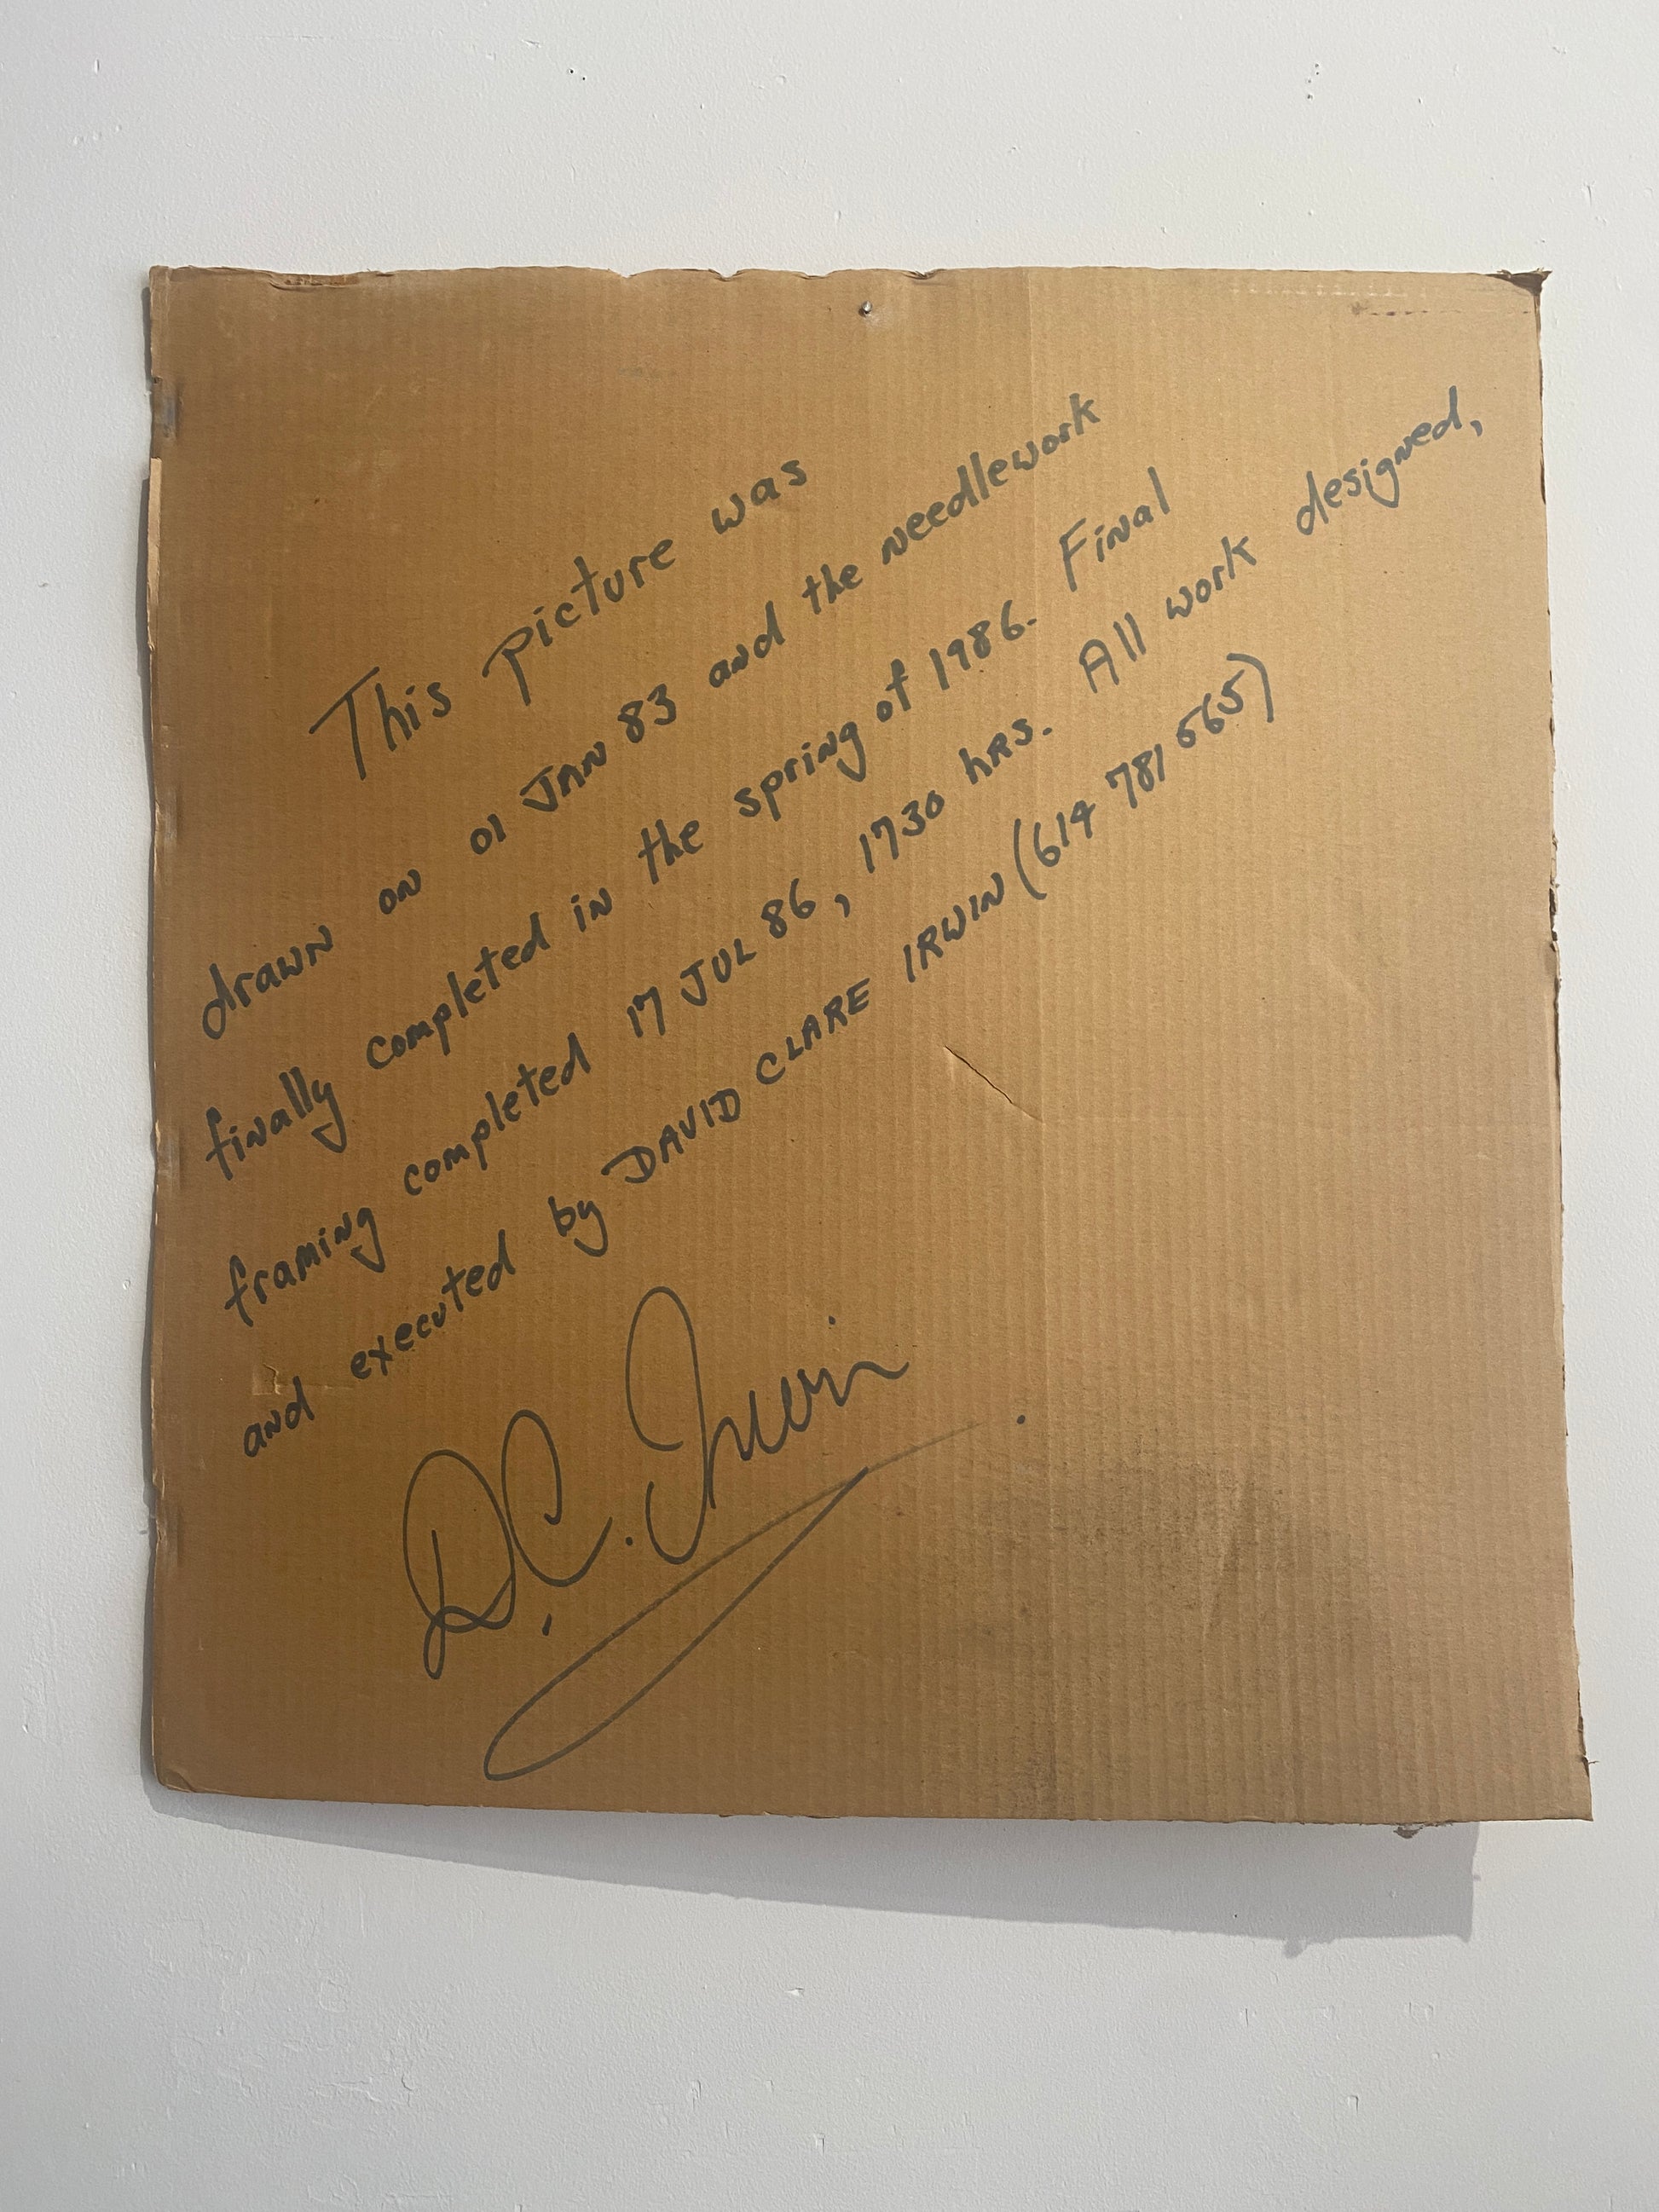 This picture was
drawn on 01 JAN 83 and the needlework
finally completed in the spring of 1986. Final
framing completed 17 JUL 86, 1730 hRS. All work designed,
and executed by DAVID CLARE IRWIN (614 781 565)
D.C. Irwin.